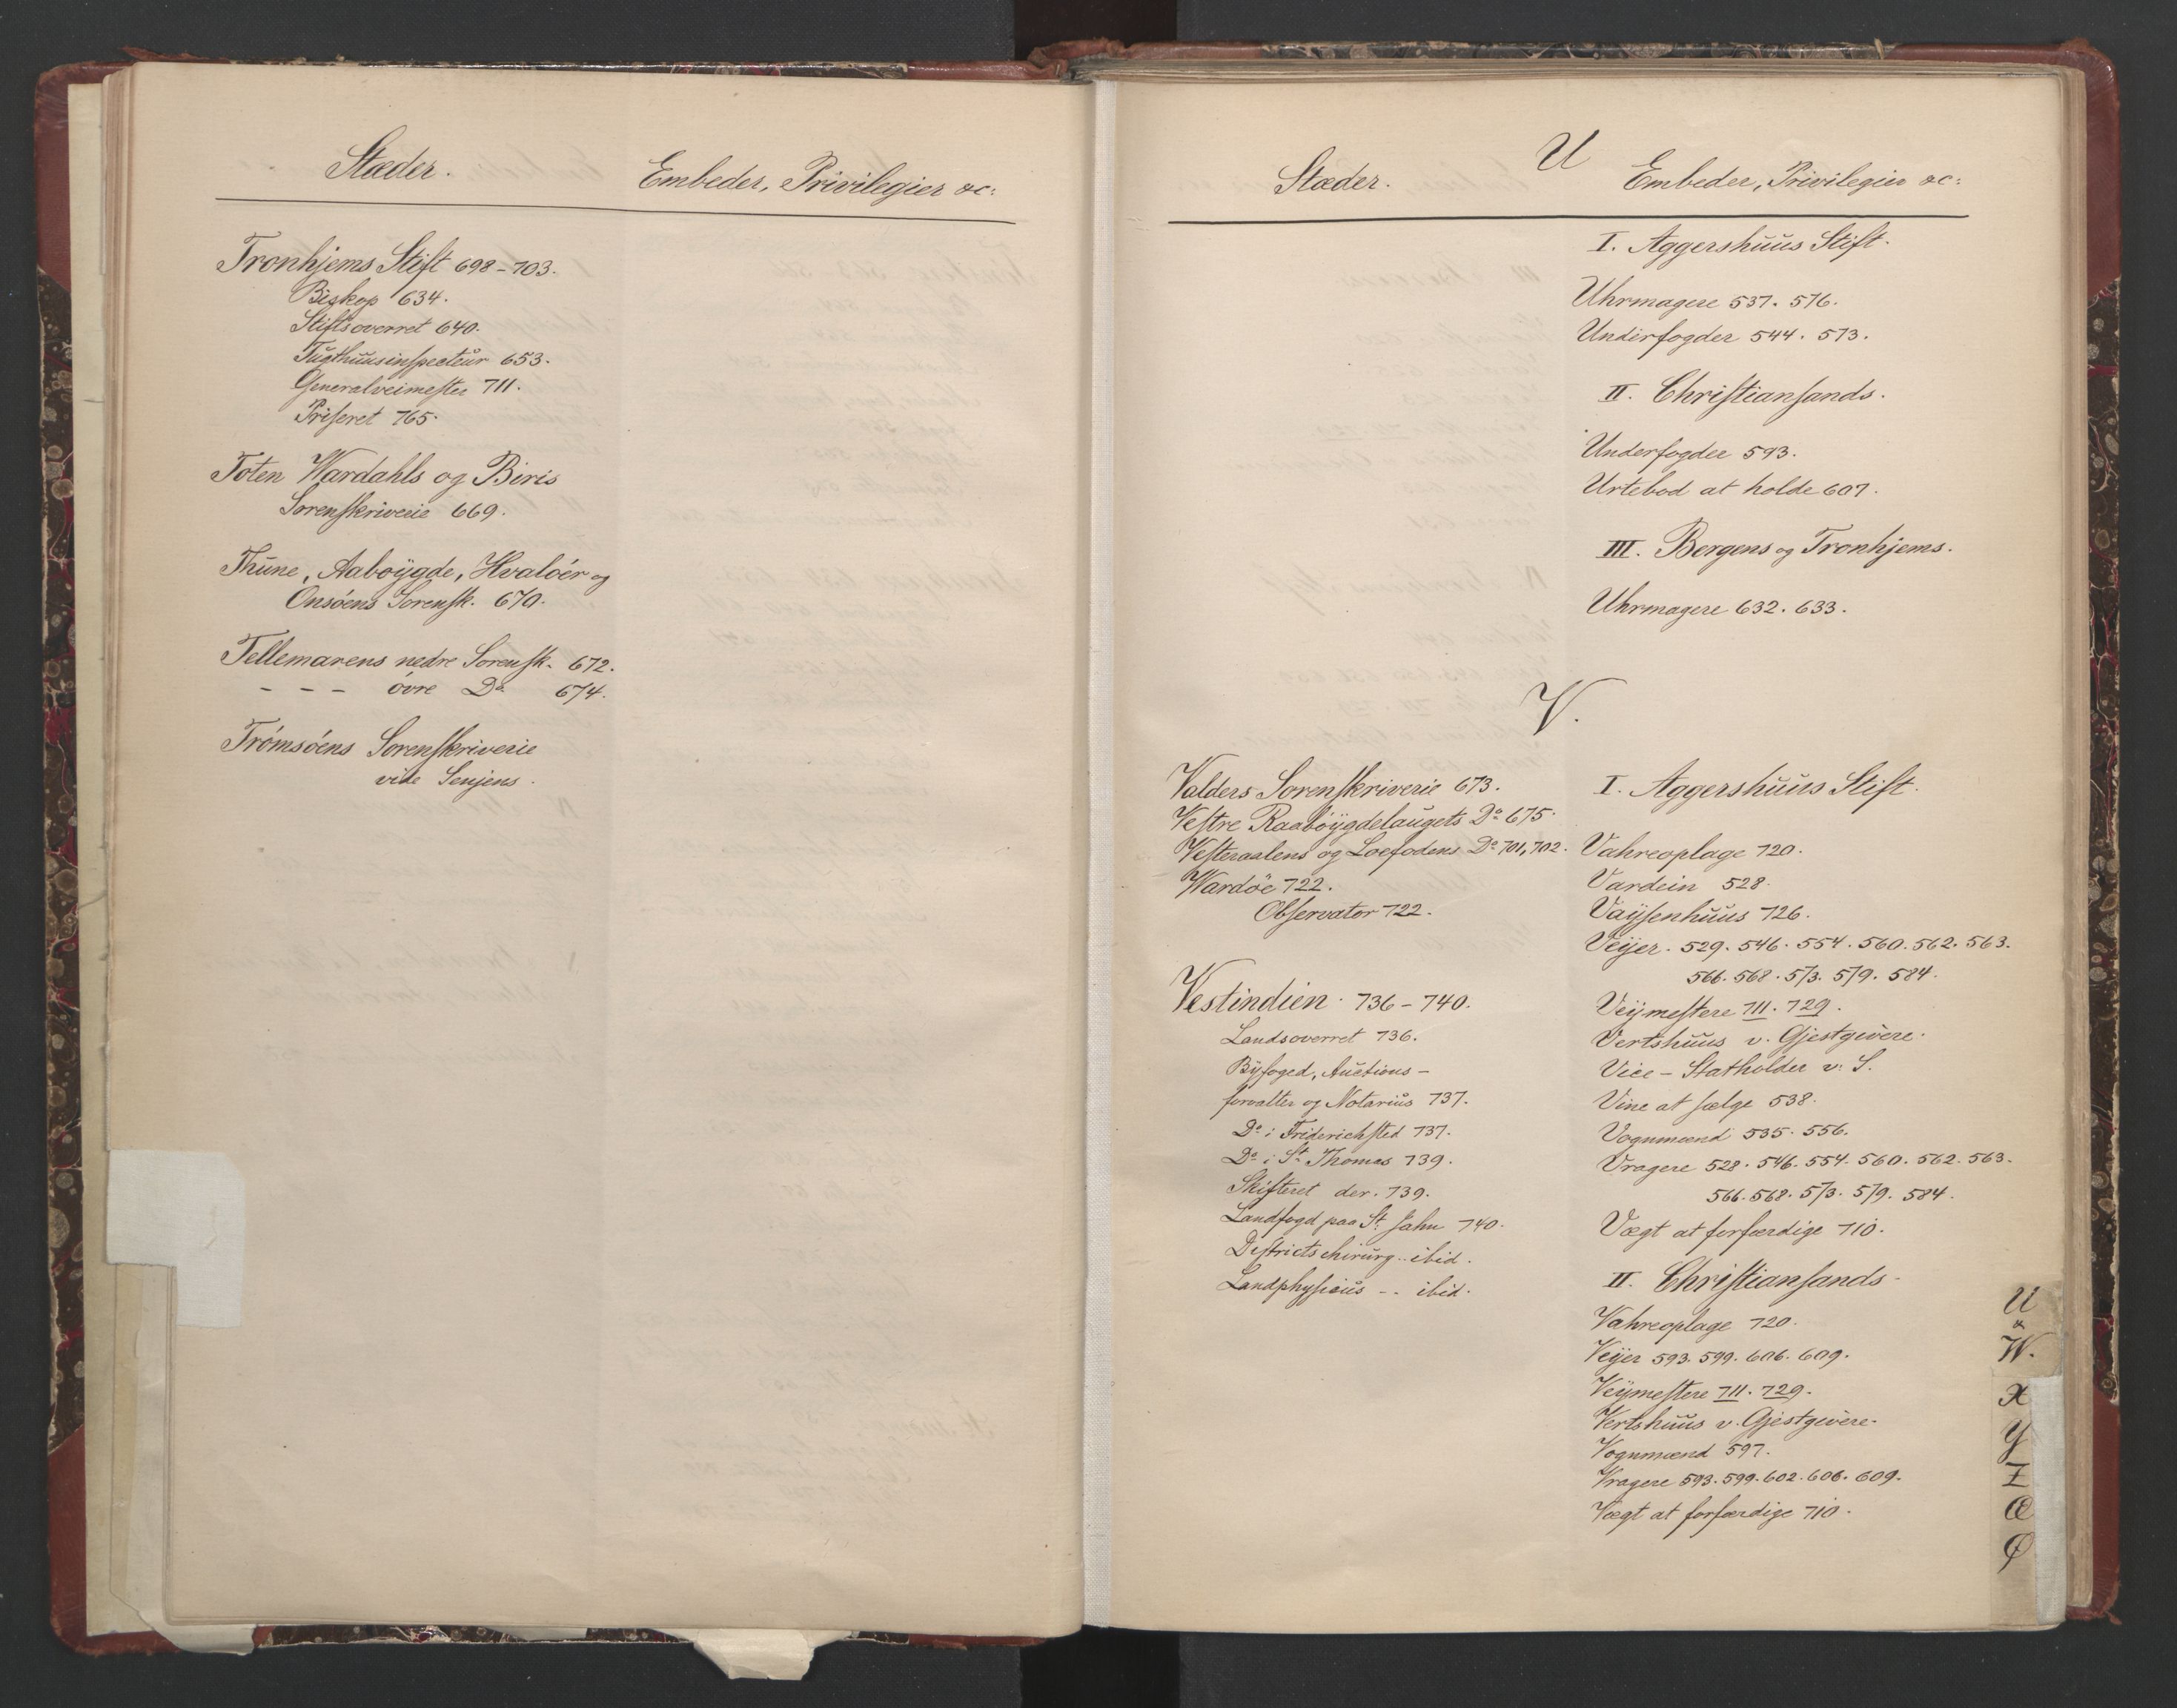 Stæder.
Embeder, Privilegier &c:
Tronhjems Stift 698-703.
Biskop 634.
Stiftsoverret 640.
Tugthuusinspecteur 653.
Generalveimester 711.
Priseret 765.
Toten Wardahls og Biris
Sorenskriverie 669.
Thune, Aaboÿgde, Hvalöer og
Onsöens Sorensk. 670.
Tellemarens nedre Sorensk. 672.
- - - övre Do 674.
Trömsöens Sorenskriverie
vide Senjens.
U
Stæder.
Embeder, Privilegier &c:
I. Aggershuus Stift.
Uhrmagere 537. 576.
Underfogder 544. 573.
II. Christiansands.
Underfogder 593.
Urtebod at holde 607.
III. Bergens og Tronhjems.
Uhrmagere 632. 633.
V.
Valders Sorenskriverie 673.
Vestre Raaböÿgdelaugets Do 675.
Vesteraalens og Loefodens Do 701, 702.
Wardöe 722.
Observator 722.
Vestindien. 736-740.
Landsoverret 736.
Byfoged, Auctions-
forvalter og Notarius 737.
Do i Friderichsted 737.
Do i St Thomas 739.
Skifteret der. 739.
Landfogd paa St. Jahn 740.
Districtschirurg.. ibid.
Landphysicus -.. ibid.
I. Aggershuus Stift.
Vahreoplage 720.
Vardein 528.
Vaÿsenhuus 726.
Veÿer. 529. 546. 554. 560. 562. 563.
566. 568. 573. 579. 584.
Veÿmestere 711. 729.
Vertshuus v. Gjestgivere.
Vice-Statholder v. S.
Vine at sælge 538.
Vognmænd 535. 556.
Vragere 528. 546. 554. 560. 562. 563.
566. 568. 573. 579. 584.
Vægt at forfærdige 710.
II. Christiansands.
Vahreoplage 720.
Veÿer 593. 599. 606. 609.
Veÿmestere 711. 729.
Vertshuus v. Gjestgivere.
Vognmænd 597.
Vragere 593. 599. 602. 606. 609.
Vægt at forfærdige 710.
U
&
W.
X
Y
Z
Æ
Ø